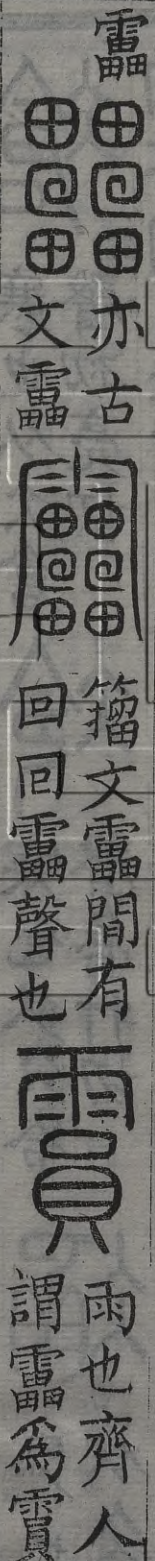 靁亦古文靁籀文靁間有回回靁聲也霣雨也齊人謂靁為霣